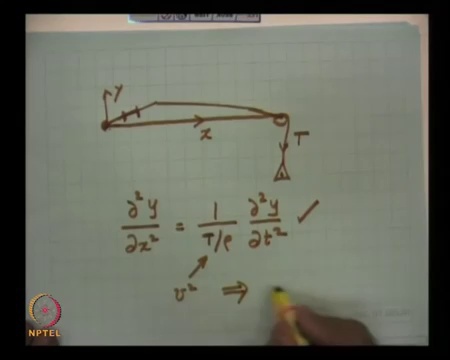 y
x
T
∂²y/∂x² = 1/(T/ρ) ∂²y/∂t² ✓
v² ⇒
NPTEL